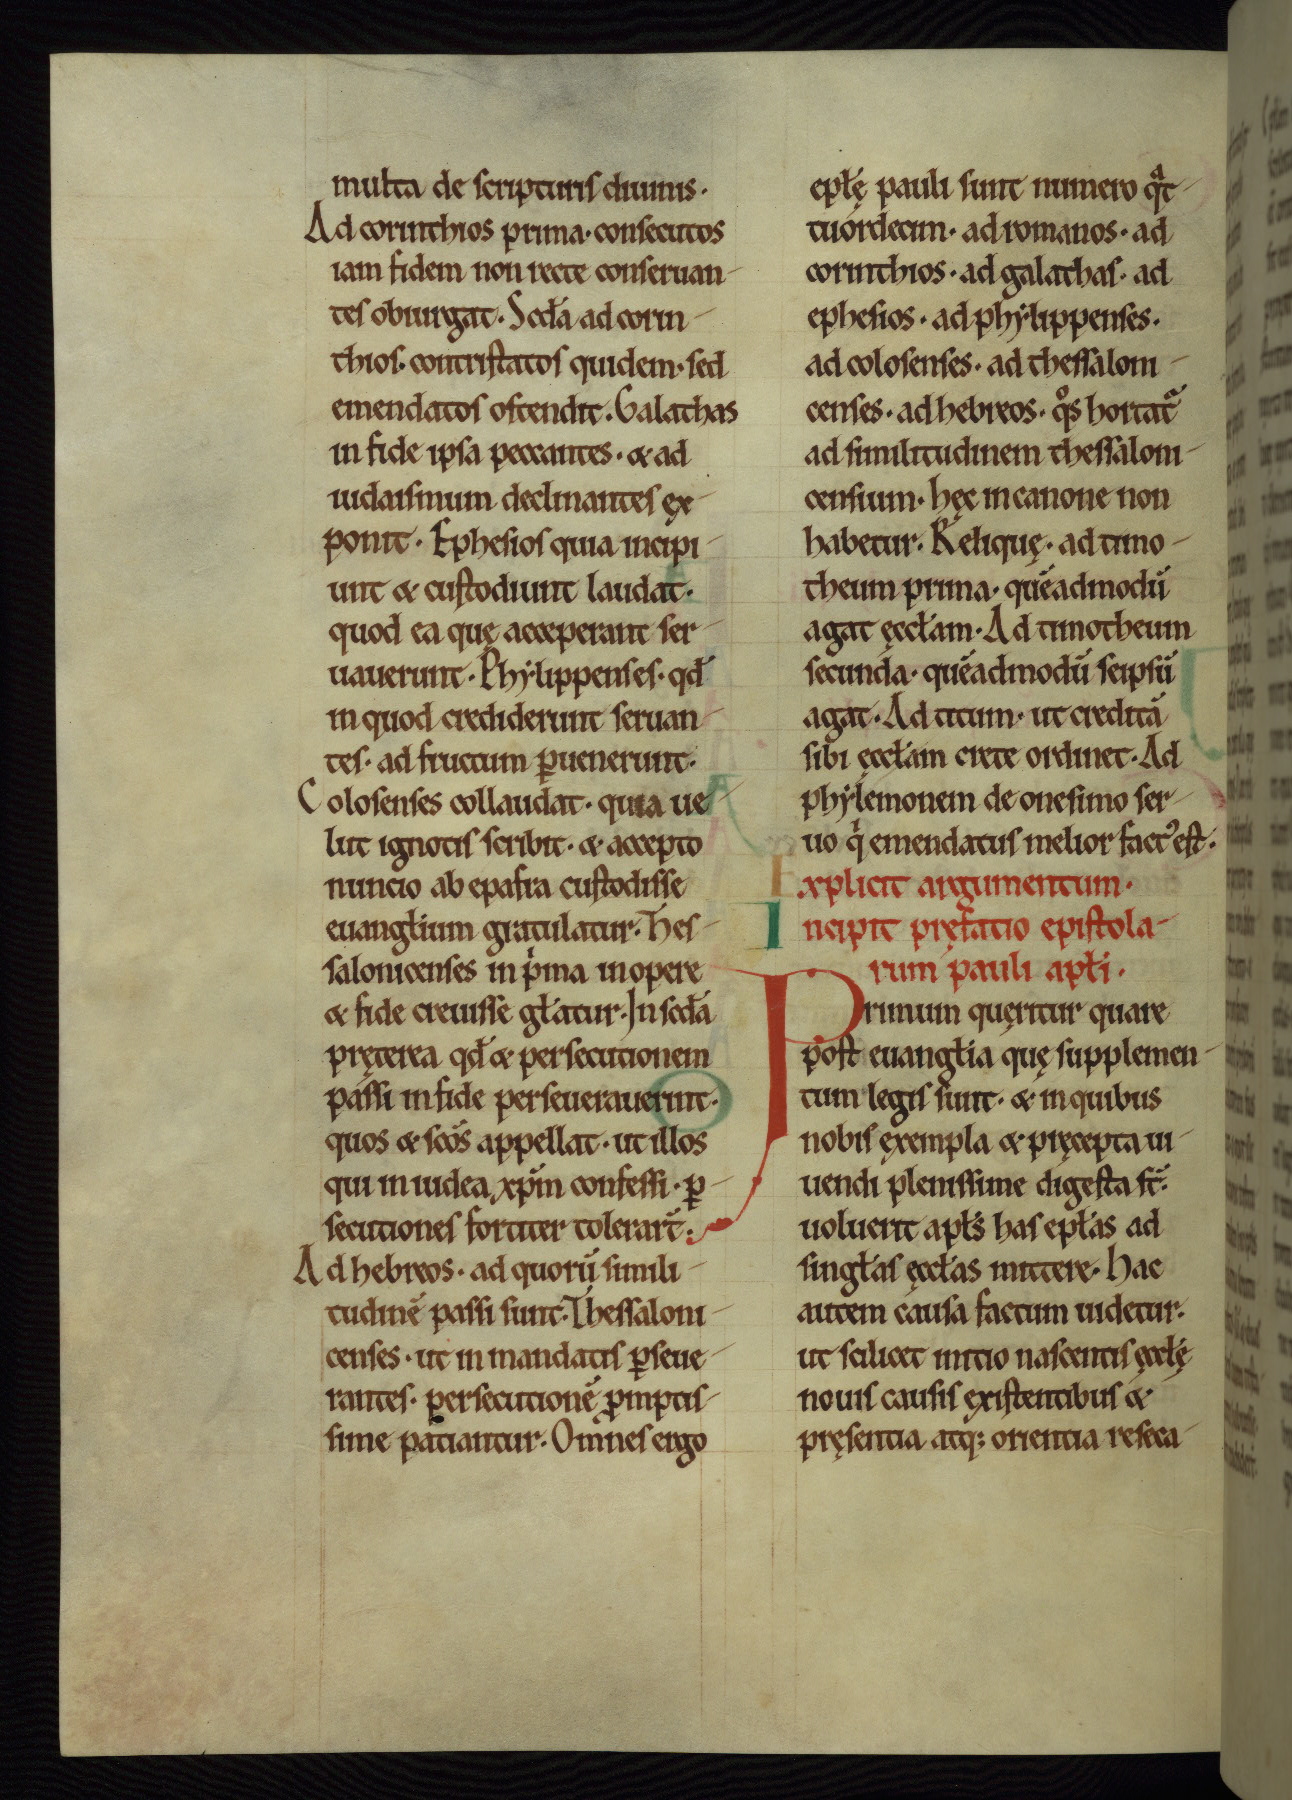 multa de scripturis diuinis·
Ad corinthios prima· consecutos
iam fidem non recte conseruan-
tes obiurgat· Scd̄a ad corin-
thios· contristatos quidem· sed
emendatos ostendit· Galathas
in fide ipsa peccantes· & ad
iudaismum declinantes ex-
ponit· Ephesios quia incipi-
unt & custodiunt laudat·
quod ea quę acceperant ser-
uauerunt· Phylippenses· qd̄
in quod crediderunt seruan-
tes· ad fructum ꝑuenerunt·
Colosenses collaudat· quia ue-
lut ignotis scribit· & accepto
nuncio ab epafra custodisse
euangłium gratulatur· Thes-
salonicenses in pͥma in opere
& fide creuisse głatur· In scd̄a
pręterea qd̄ & persecutionem
passi in fide perseuerauerunt·
quos & sc̄os appellat· ut illos
qui in iudea xp̄m confessi· ꝑ-
secutiones fortiter tolerar̄t·
Ad hebreos· ad quorū simili-
tudinē passi sunt· Thessaloni-
censes· ut in mandatis ꝑseue-
rantes· persecutionē ꝓmptis-
sime patiantur· Omnes ergo
epłę pauli sunt numero qͣt-
tuordecim· ad romanos· ad
corinthios· ad galathas· ad
ephesios· ad phylippenses·
ad colosenses· ad thessaloni-
censes· ad hebreos· qͦs hortat᷑
ad similitudinem thessaloni-
censium· hęc in canone non
habetur· Reliquę· ad timo-
theum prima· quēadmodū
agat ęccłam· Ad timotheum
secunda· quēadmodū seipsū
agat· Ad titum· ut creditā
sibi ęccłam crete ordinet· Ad
phylemonem de onesimo ser-
uo qͥ emendatus melior factꝰ est·
Explicit argumentum·
Incipit pręfatio epistola-
rum pauli apłi·
Primum queritur quare
post euangłia quę supplemen-
tum legis sunt· & in quibus
nobis exempla & pręcepta ui-
uendi plenissime digesta st̄·
uoluerit apłs has epłas ad
singłas ęccłas mittere· Hac
autem causa factum uidetur·
ut scilicet initio nascentis ęccłę
nouis causis existentibus &
pręsentia atq; orientia reseca-